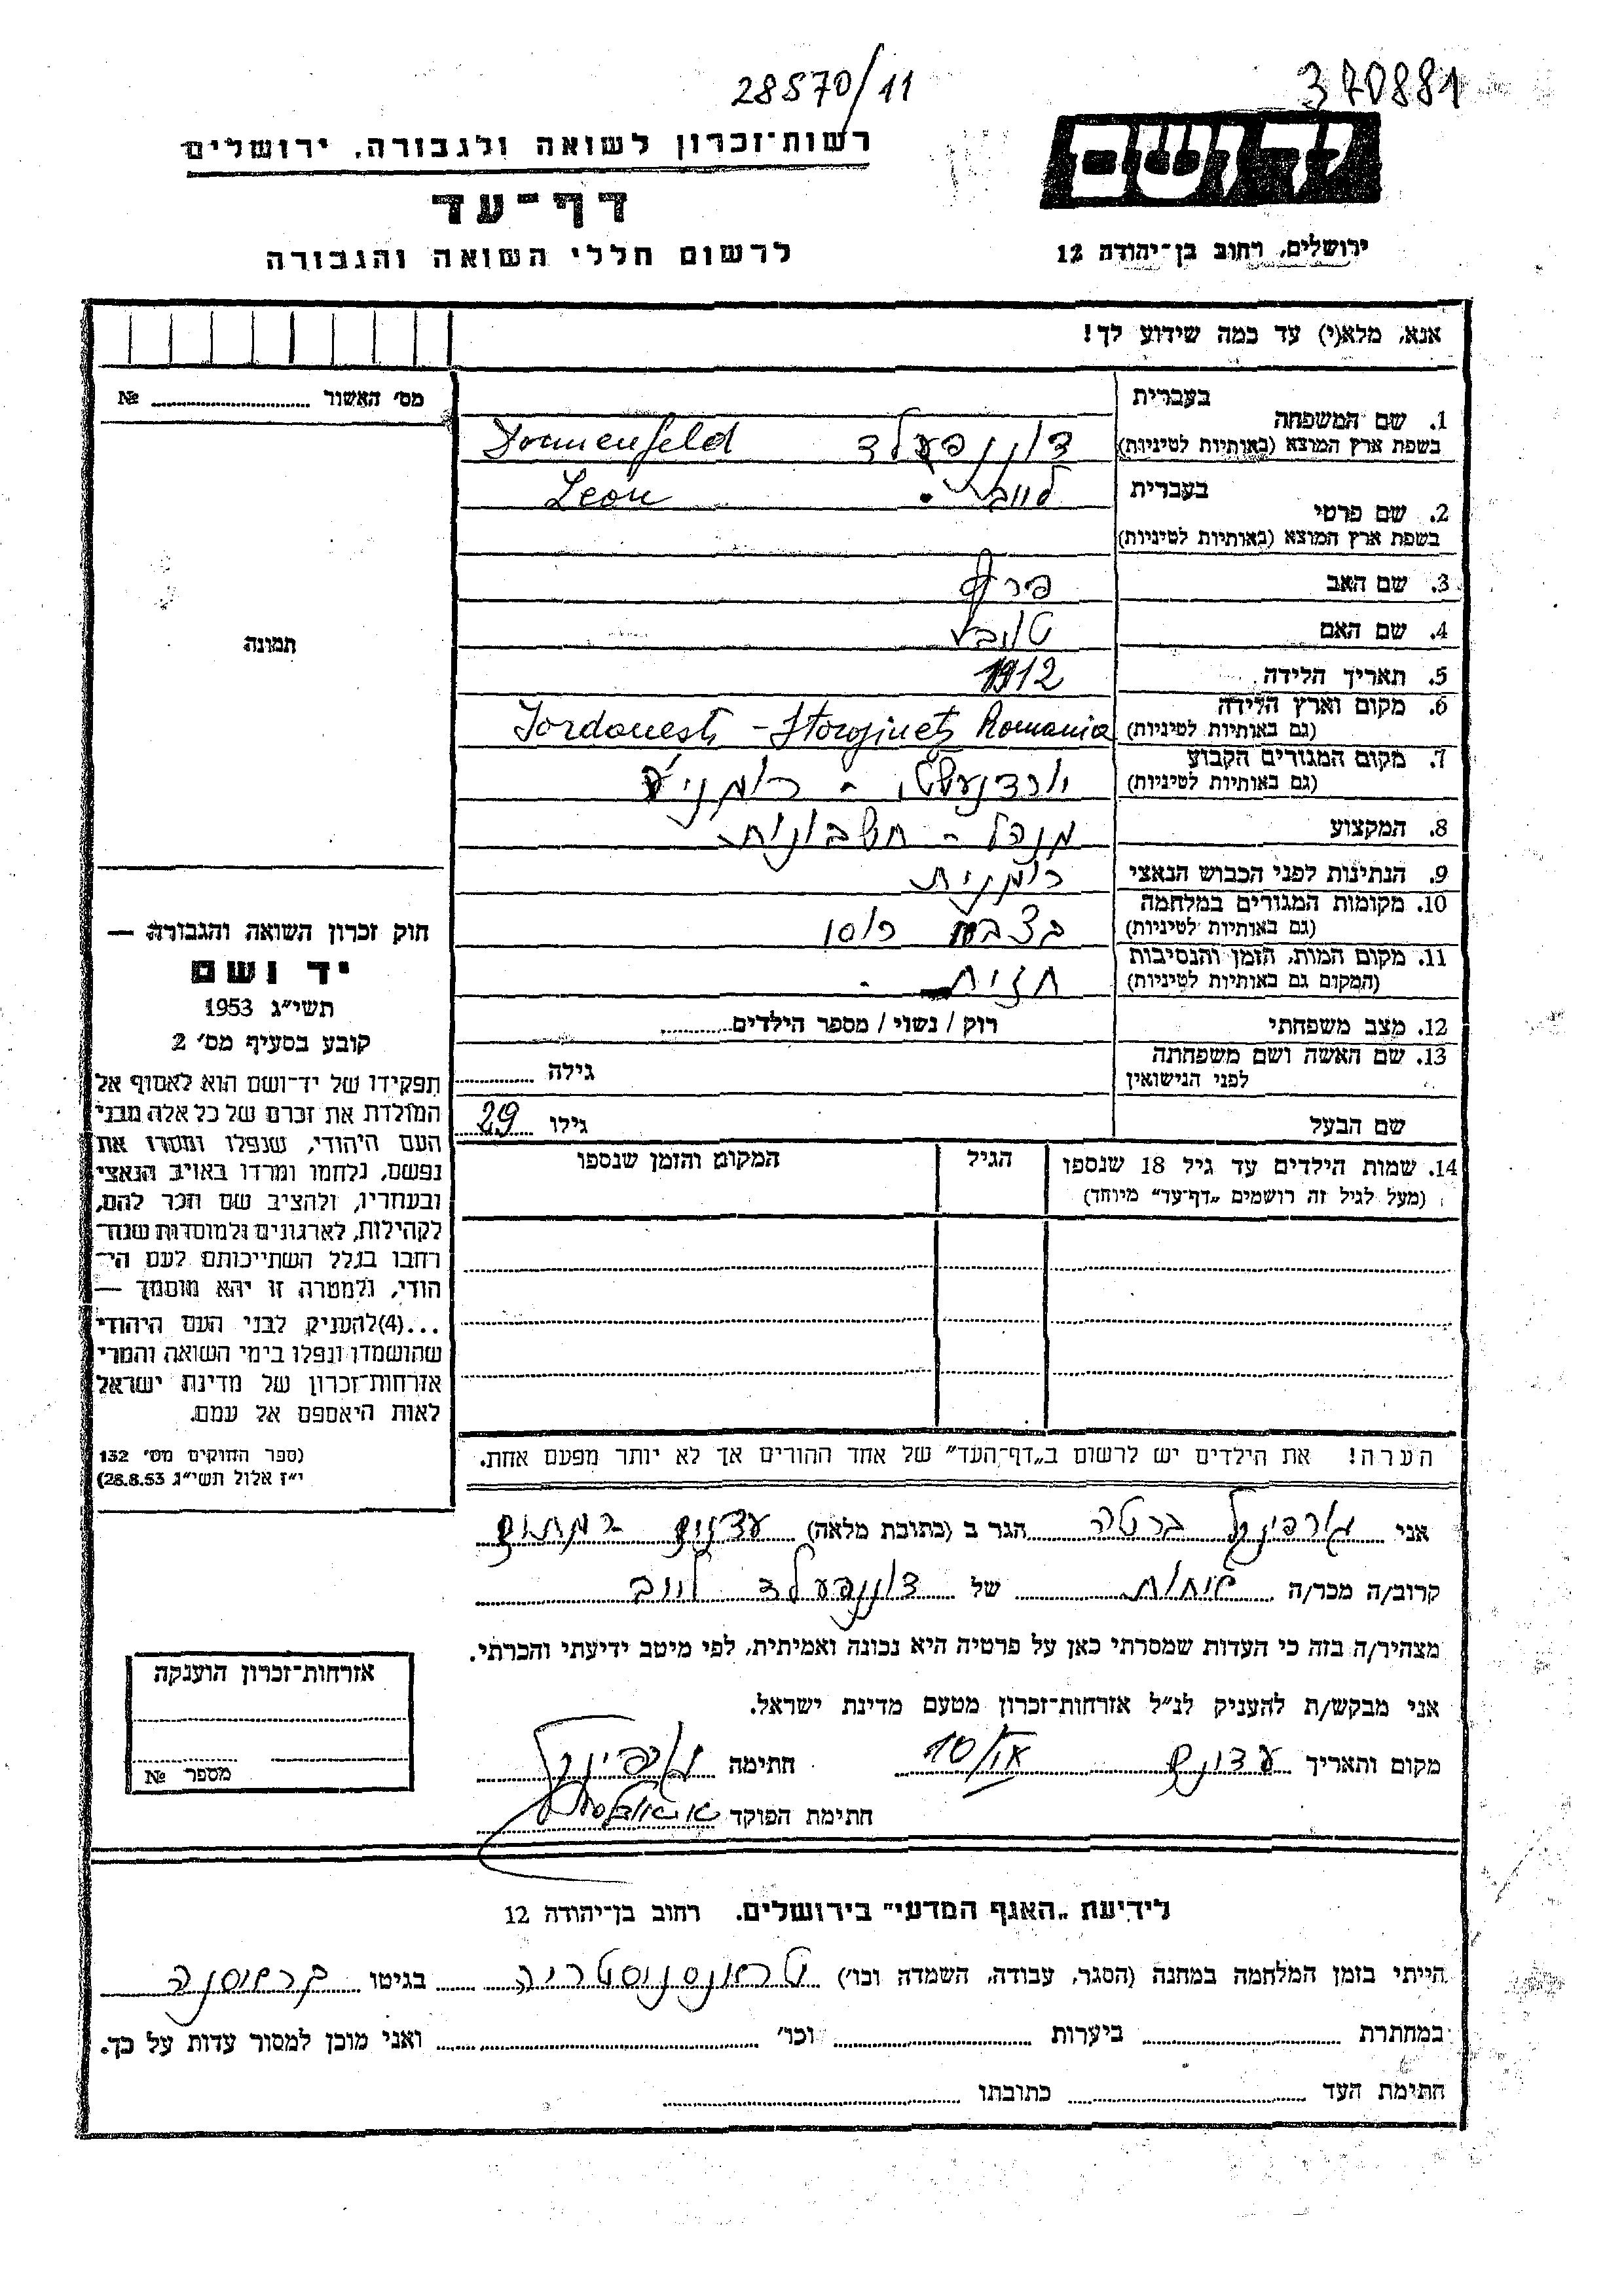 28570/11
370881
רשות־זכרון לשואה ולגבורה, ירושלים
יד ושם
דף־עד
לרשום חללי השואה והגבורה
ירושלים, רחוב בן־יהודה 12
אנא, מלא(י) עד כמה שידוע לך!
מס׳ האשור № 
בעברית
1. שם המשפחה
בשפת ארץ המוצא (באותיות לטיניות)
דוננפעלד Donnenfeld
בעברית
לייבי Leon
2. שם פרטי
בשפת ארץ המוצא (באותיות לטיניות)
3. שם האב
4. שם האם
תמונה
5. תאריך הלידה 1912
6. מקום וארץ הלידה
(גם באותיות לטיניות) Iordanesti - Storojinetz Romania
7. מקום המגורים הקבוע
(גם באותיות לטיניות) יורדנעשטי - רומניע
8. המקצוע מנהל - חשבונות
9. הנתינות לפני הכבוש הנאצי רומנית
10. מקומות המגורים במלחמה
(גם באותיות לטיניות) בצבע רוסי
11. מקום המות, הזמן והנסיבות
(המקום גם באותיות לטיניות) חזית
12. מצב משפחתי רוק / נשוי / מספר הילדים
13. שם האשה ושם משפחתה
לפני הנישואין גילה
שם הבעל גילו 29
14. שמות הילדים עד גיל 18 שנספו הגיל המקום והזמן שנספו
(מעל לגיל זה רושמים „דף־עד” מיוחד)
חוק זכרון השואה והגבורה —
יד ושם
תשי״ג 1953
קובע בסעיף מס׳ 2
תפקידו של יד־ושם הוא לאסוף אל
המולדת את זכרם של כל אלה מבני
העם היהודי, שנפלו ומסרו את
נפשם, נלחמו ומרדו באויב הנאצי
ובעוזריו, ולהציב שם וזכר להם,
לקהילות, לארגונים ולמוסדות שנח־
רבו בגלל השתייכותם לעם הי־
הודי, ולמטרה זו יהא מוסמך —
...(4)להעניק לבני העם היהודי
שהושמדו ונפלו בימי השואה והמרי
אזרחות־זכרון של מדינת ישראל
לאות היאספם אל עמם.
(ספר החוקים מס׳ 132
י״ז אלול תשי״ג 28.8.53)
הערה! את הילדים יש לרשום ב„דף־העד” של אחד ההורים אך לא יותר מפעם אחת.
אני גארפינקל ברטה הגר ב (כתובת מלאה)
קרוב/ה מכר/ה אחות של דוננפעלד לייב
מצהיר/ה בזה כי העדות שמסרתי כאן על פרטיה היא נכונה ואמיתית, לפי מיטב ידיעתי והכרתי.
אני מבקש/ת להעניק לנ״ל אזרחות־זכרון מטעם מדינת ישראל.
מקום והתאריך חתימה
חתימת הפוקד
אזרחות־זכרון הוענקה
מספר №
לידיעת „האגף המדעי” בירושלים. רחוב בן־יהודה 12
הייתי בזמן המלחמה במחנה (הסגר, עבודה, השמדה וכו׳) טראנסניסטריה בגיטו
במחתרת ביערות וכו׳ ואני מוכן למסור עדות על כך.
חתימת העד כתובתו